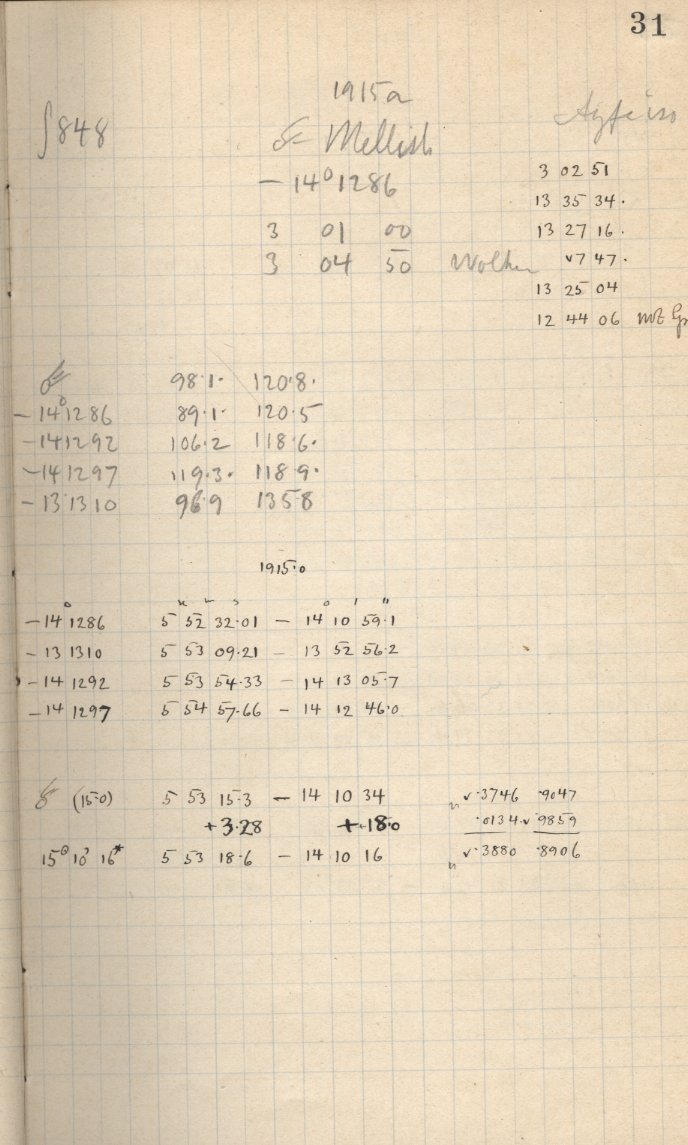 31
1915a
∫848
Mellish
-14° 1286
3 02 51
13 35 34.
3 01 00
13 27 16.
3 04 50
√7 47.
13 25 04
12 44 06 not
98.1. 120.8.
-14° 1286 89.1. 120.5
-14 1292 106.2 118.6.
-14 1297 119.3. 118.9.
-13 1310 96.9 135.8
1915.0
h m s ° ' "
-14° 1286 5 52 32.01 - 14 10 59.1
-13 1310 5 53 09.21 - 13 52 56.2
-14 1292 5 53 54.33 - 14 13 05.7
-14 1297 5 54 57.66 - 14 12 46.0
(15.0) 5 53 15.3 - 14 10 34 n √.3746 .9047
+3.28 +18.0 .0134 √.9859
5 53 18.6 - 14 10 16 n √.3880 .8906